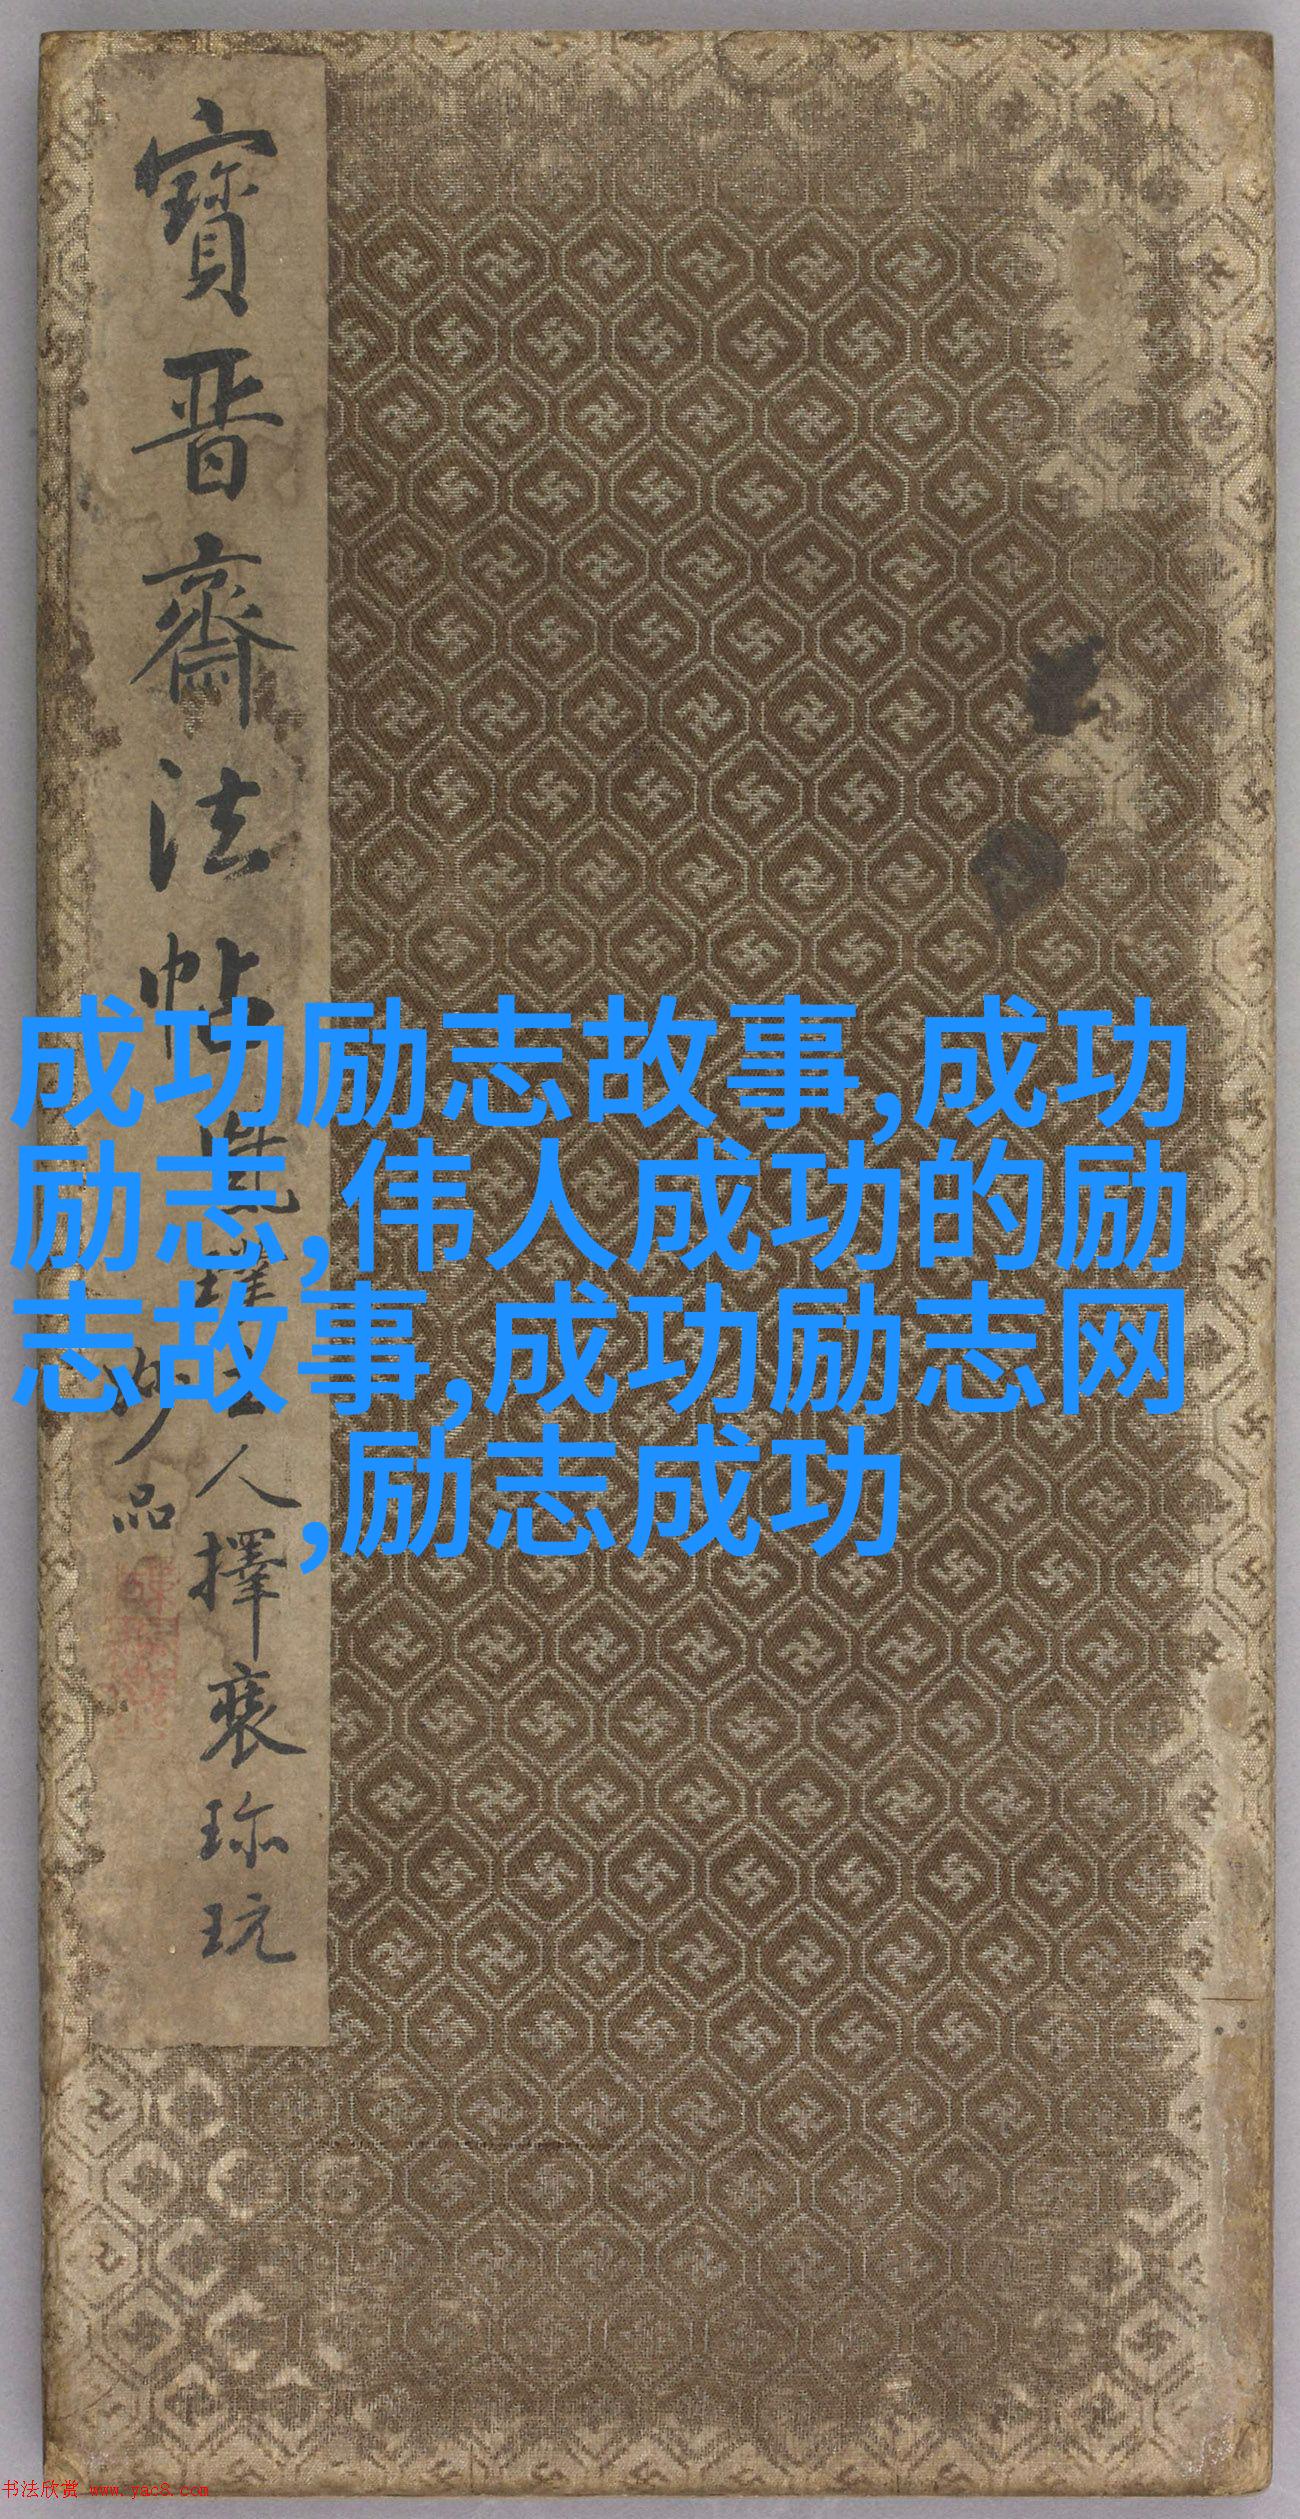 寶晉齋法帖
人擇裘珎玩
品
成功励志故事,成功
励志,伟人成功的励
志故事,成功励志网
,励志成功
书法欣赏 www.yac8.com